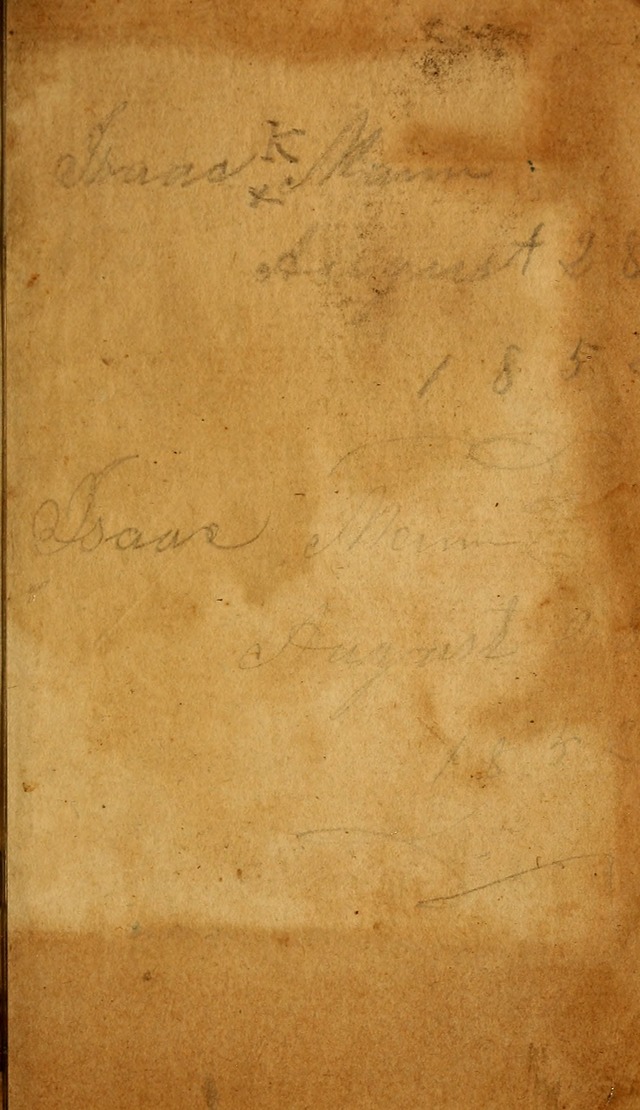 Isaac K Mann
x
August 28
1 8 5
Isaac Mann
August 2
1 8 5